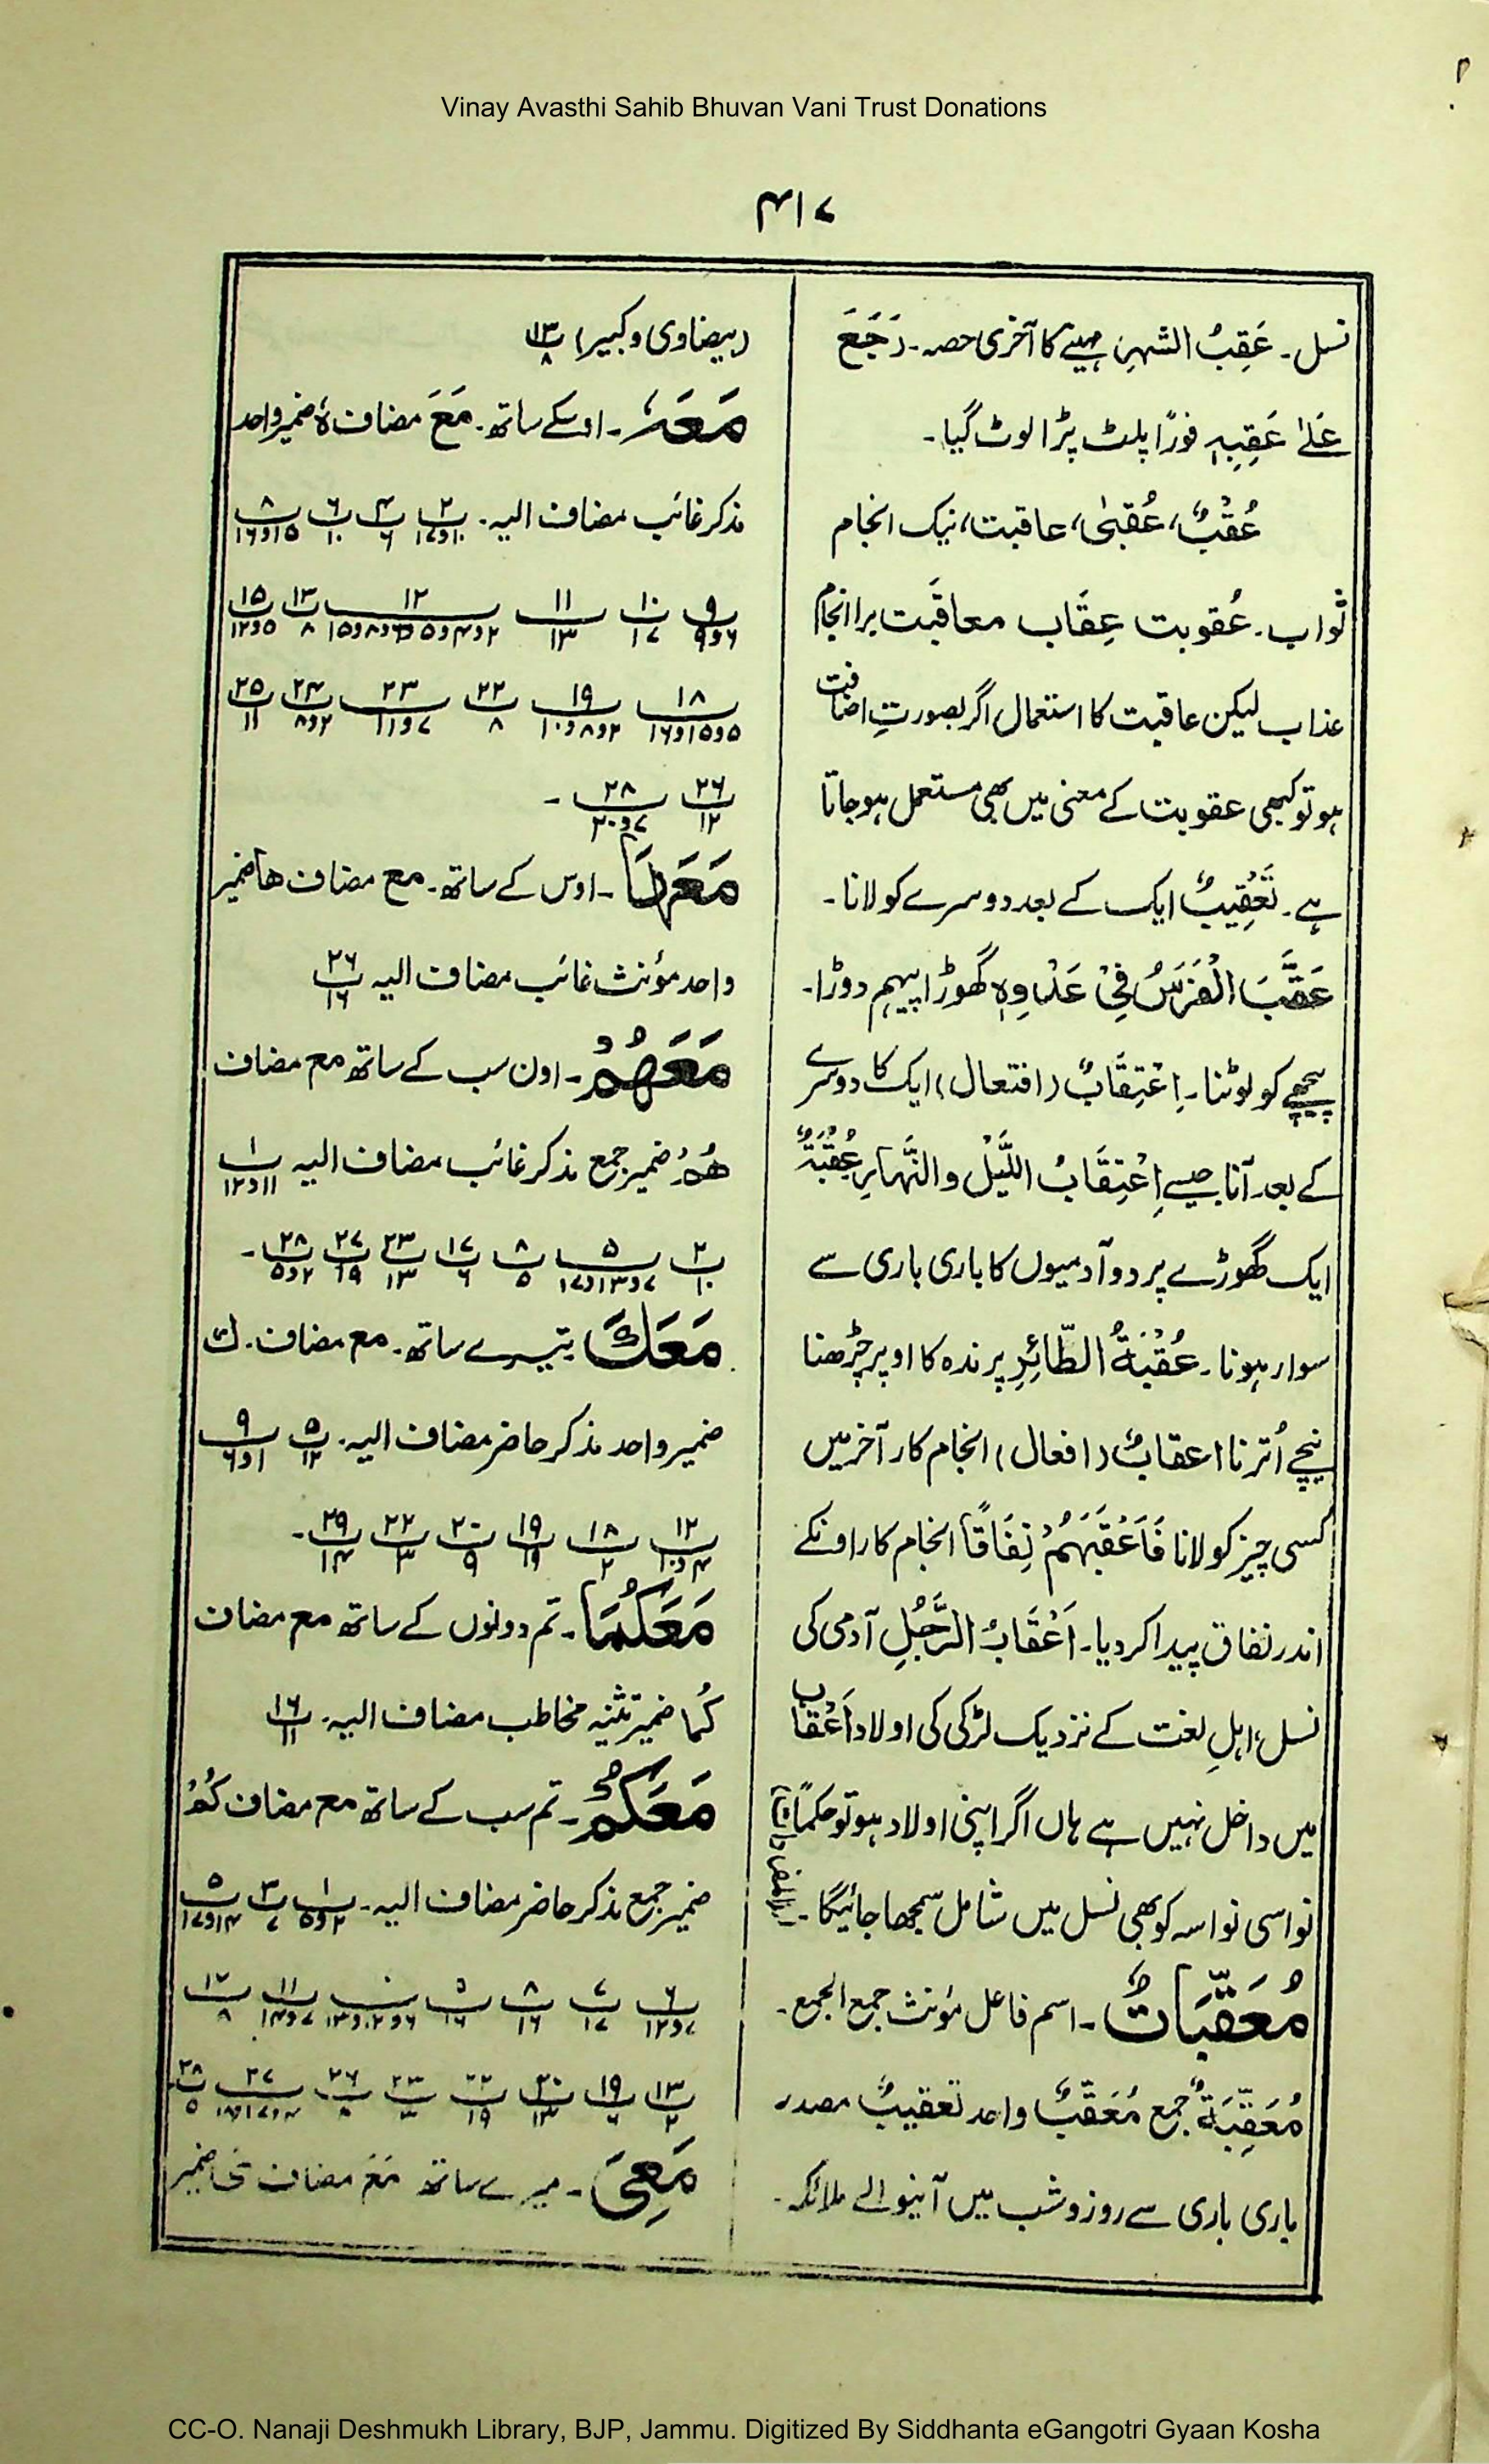 Vinay Avasthi Sahib Bhuvan Vani Trust Donations
۴۱۷
نسل۔ عَقِبُ الشہرِ مہینے کا آخری حصہ۔ رَجَعَ
عَلٰی عَقِبِہٖ فورًا پلٹ پڑا لوٹ گیا۔
عُقْبٌ، عُقبیٰ، عاقبت، نیک انجام
ثواب۔ عُقوبت عِقَاب معاقَبت برا انجام
عذاب لیکن عاقبت کا استعمال اگر بصورتِ اضافت
ہو تو کبھی عقوبت کے معنی میں بھی مستعمل ہو جاتا
ہے۔ تَعْقِیبٌ ایک کے بعد دوسرے کو لانا۔
عَقَّبَ الْفَرَسُ فِیْ عَدْوِہٖ گھوڑا پیہم دوڑا۔
پیچھے کو لوٹنا۔ اِعْتِقَابٌ (افتعال) ایک کا دوسرے
کے بعد آنا جیسے اِعْتِقَابُ اللَّیْل والنَّہَارِ عُقْبَۃٌ
ایک گھوڑے پر دو آدمیوں کا باری باری سے
سوار ہونا۔ عُقْبَۃُ الطَّائِرِ پرندہ کا اوپر چڑھنا
نیچے اُترنا اعقابٌ (افعال) انجام کار آخر میں
کسی چیز کو لانا فَاَعْقَبَہُمْ نِفَاقًا انجام کار اونکے
اندر نفاق پیدا کر دیا۔ اَعْقَابُ الرَّجُلِ آدمی کی
نسل، اہلِ لغت کے نزدیک لڑکی کی اولاد اَعْقَاب
میں داخل نہیں ہے ہاں اگر اپنی اولاد ہو تو حکمًا
نواسی نواسہ کو بھی نسل میں شامل سمجھا جائیگا۔
مُعَقِّبَاتٌ۔ اسم فاعل مؤنث جمع الجمع۔
مُعَقِّبَۃٌ جمع مُعَقِّبٌ واحد تعقیبٌ مصدر
باری باری سے روز و شب میں آنیوالے ملائکہ۔
(بیضاوی و کبیر) ۱۳/۸
مَعَہٗ۔ اوسکے ساتھ۔ مَعَ مضاف ہٗ ضمیر واحد
مذکر غائب مضاف الیہ۔ ۲/۱۰و۱۷ ۴/۶ ۶/۱۰ ۸/۱۵و۱۶
۹/۶و۹ ۱۰/۱۷ ۱۱/۱۳ ۱۲/۲و۴و۵و۶و۸و۱۵ ۱۳/۸ ۱۵/۵و۱۲
۱۸/۵و۱۵و۱۶ ۱۹/۲و۸و۱۰ ۲۲/۸ ۲۳/۷و۱۱ ۲۴/۲و۸ ۲۵/۱۱
۲۶/۱۲ ۲۸/۷و۲۰۔
مَعَہَا۔ اوس کے ساتھ۔ مع مضاف ھا ضمیر
واحد مؤنث غائب مضاف الیہ ۲۶/۱۶
مَعَھُمْ۔ اون سب کے ساتھ مع مضاف
ھُمْ ضمیر جمع مذکر غائب مضاف الیہ ۱/۱۱و۱۲
۲/۱۰ ۵/۷و۱۳و۱۷ ۸/۵ ۱۷/۶ ۲۳/۱۳ ۲۷/۱۹ ۲۸/۲و۵۔
مَعَكَ تیرے ساتھ۔ مع مضاف۔ ك
ضمیر واحد مذکر حاضر مضاف الیہ۔ ۵/۱۲ ۹/۱و۶
۱۲/۴و۱۰ ۱۸/۲ ۱۹/۱۹ ۲۰/۹ ۲۲/۳ ۲۹/۱۴۔
مَعَکُمَا۔ تم دونوں کے ساتھ مع مضاف
کُمَا ضمیر تثنیہ مخاطب مضاف الیہ۔ ۱۶/۱۱
مَعَکُمْ۔ تم سب کے ساتھ مع مضاف کُمْ
ضمیر جمع مذکر حاضر مضاف الیہ۔ ۱/۲و۵ ۳/۷ ۵/۱۴و۱۷
۶/۷و۱۲ ۷/۱۷ ۸/۱۶ ۱۱/۷و۱۴ ۱۲/۸
۱۳/۲ ۲۰/۱۳ ۲۲/۱۹ ۲۶/۸ ۲۸/۵
مَعِیَ۔ میرے ساتھ مَعَ مضاف ی ضمیر
CC-O. Nanaji Deshmukh Library, BJP, Jammu. Digitized By Siddhanta eGangotri Gyaan Kosha